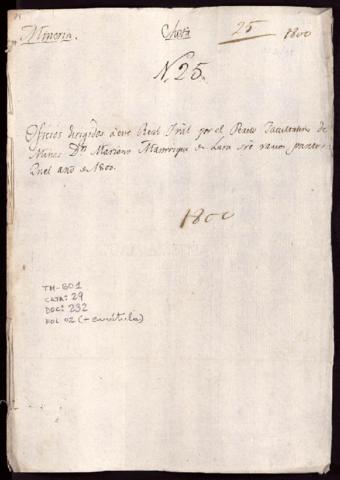 Mineria. Chota 25 1800
N. 25.
Oficios dirigidos a este Real Tral por el Perito Facultativo de
Minas Dn Mariano Manrrique de Lara sre varios puntos
en el año de 1800.
1800
TM-BO1
CAJA: 29
DOC: 232
FOL 02 (+ carátula)